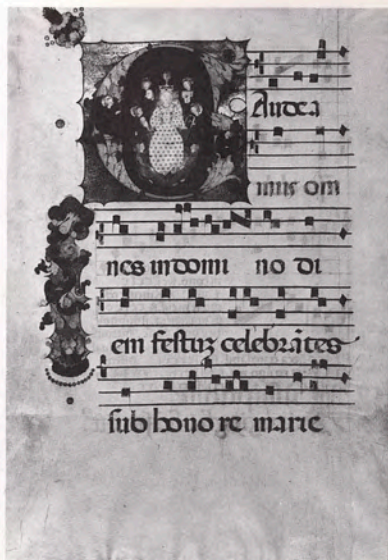 GAudea
mus om
nes in domi no di
em festuz celebrãtes
sub hono re marie